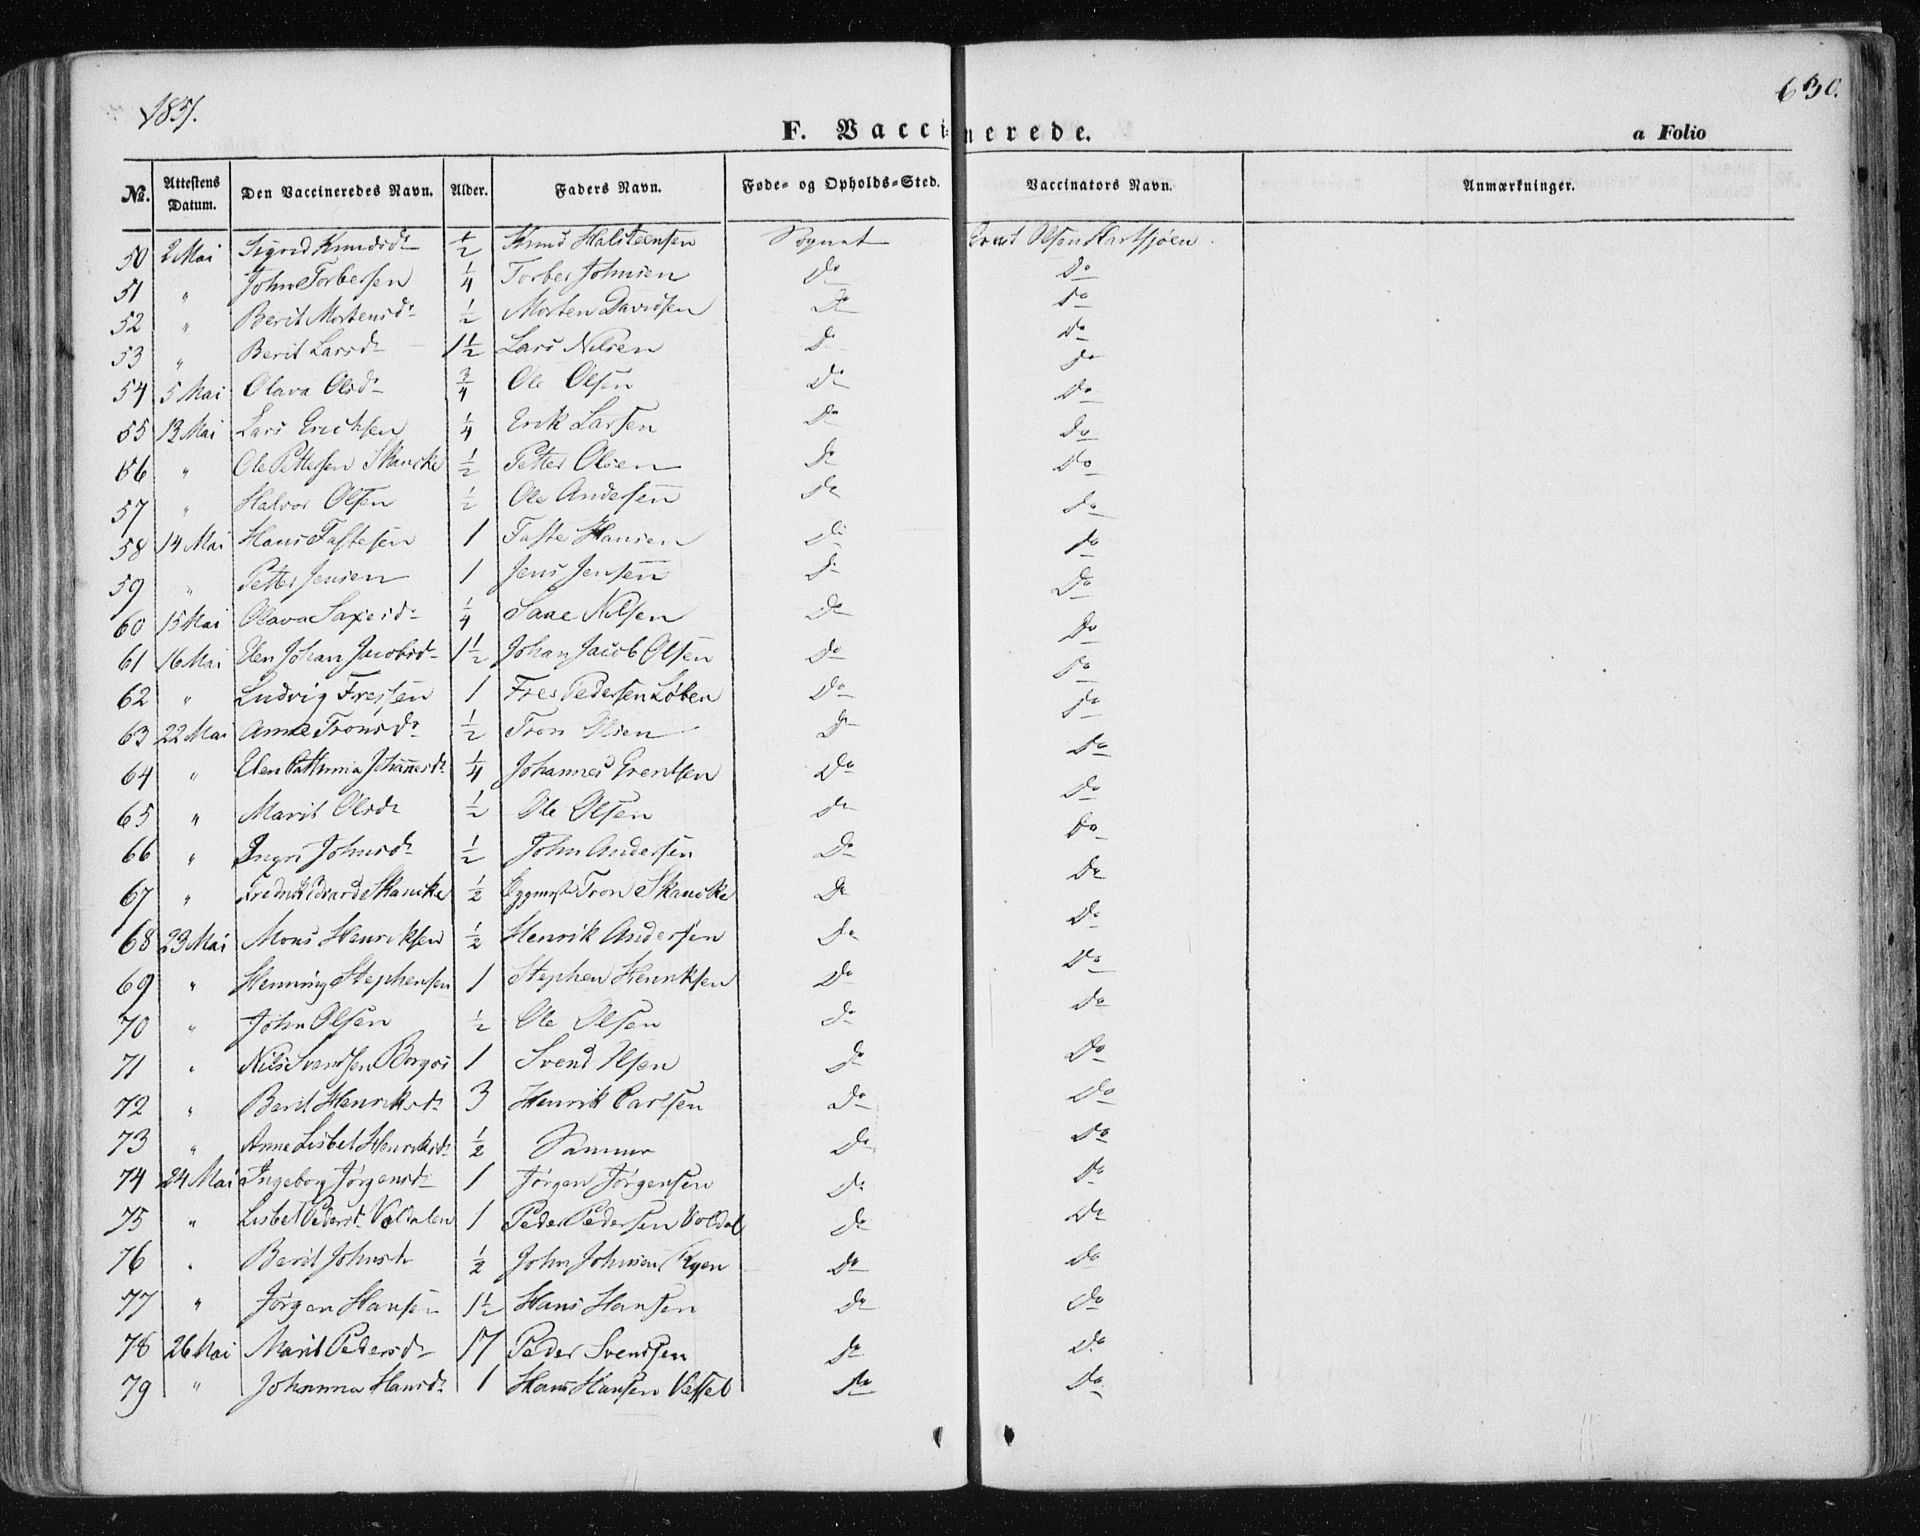 630.
F. Vaccinerede.
a Folio
No. Attestens Datum. Den Vaccineredes Navn. Alder. Faders Navn. Føde- og Opholds-Sted. Vaccinators Navn. Anmærkninger.
50 2 Mai Sigrid Knudsdr 1/2 Knud Halsteensen Sognet Olsen
51 " John Torbersen 1/4 Torber Johnsen Do Do
52 " Berit Mortensdr 1/2 Morten Davidsen Do Do
53 " Berit Larsdr 1 1/2 Lars Nilsen Do Do
54 5 Mai Olava Olsdr 3/4 Ole Olsen Do Do
55 12 Mai Lars Erichsen 1/4 Erik Larsen Do Do
56 " Ole Pettersen Skancke 1/2 Petter Olsen Do Do
57 " Halvor Olsen 1/2 Ole Andersen Do Do
58 14 Mai Hans Tastesen 1 Taste Hansen Do Do
59 " Petter Jensen 1 Jens Jensen Do Do
60 15 Mai Olava Saxesdr 1/4 Saxe Nilsen Do Do
61 16 Mai Elen Johan Jacobsdr 1 1/2 Johan Jacob Olsen Do Do
62 " Ludvig Fressen 1 Fres Pedersen Løken Do Do
63 22 Mai Anne Tronsdr 1/2 Tron Olsen Do Do
64 " Elen Johannesdr 1/4 Johannes Erentsen Do Do
65 " Marit Olsdr 1/2 Ole Olsen Do Do
66 " Ingri Johnsdr 1/2 John Andersen Do Do
67 " Skancke 1/2 Tron Skancke Do Do
68 23 Mai Mons Henriksen 1/2 Henrik Andersen Do Do
69 " Henning Stephensen 1 Stephen Henriksen Do Do
70 " John Olsen 1/2 Ole Olsen Do Do
71 " Nils Svendsen Borgos 1 Svend Olsen Do Do
72 " Berit Henriksdr 3 Henrik Carlsen Do Do
73 " Anne Lisbet Henriksdr 1/2 Samme Do Do
74 24 Mai Ingeborg Jørgensdr 1 Jørgen Jørgensen Do Do
75 " Lisbet Pedersdr Voldalen 1 Peder Pedersen Voldal Do Do
76 " Berit Johnsdr 1/2 John Johnsen Ryen Do Do
77 " Jørgen Hansen 1 1/2 Hans Hansen Do Do
78 26 Mai Marit Pedersdr 17 Peder Svendsen Do Do
79 " Johanna Hansdr 1 Hans Hansen Vessel Do Do